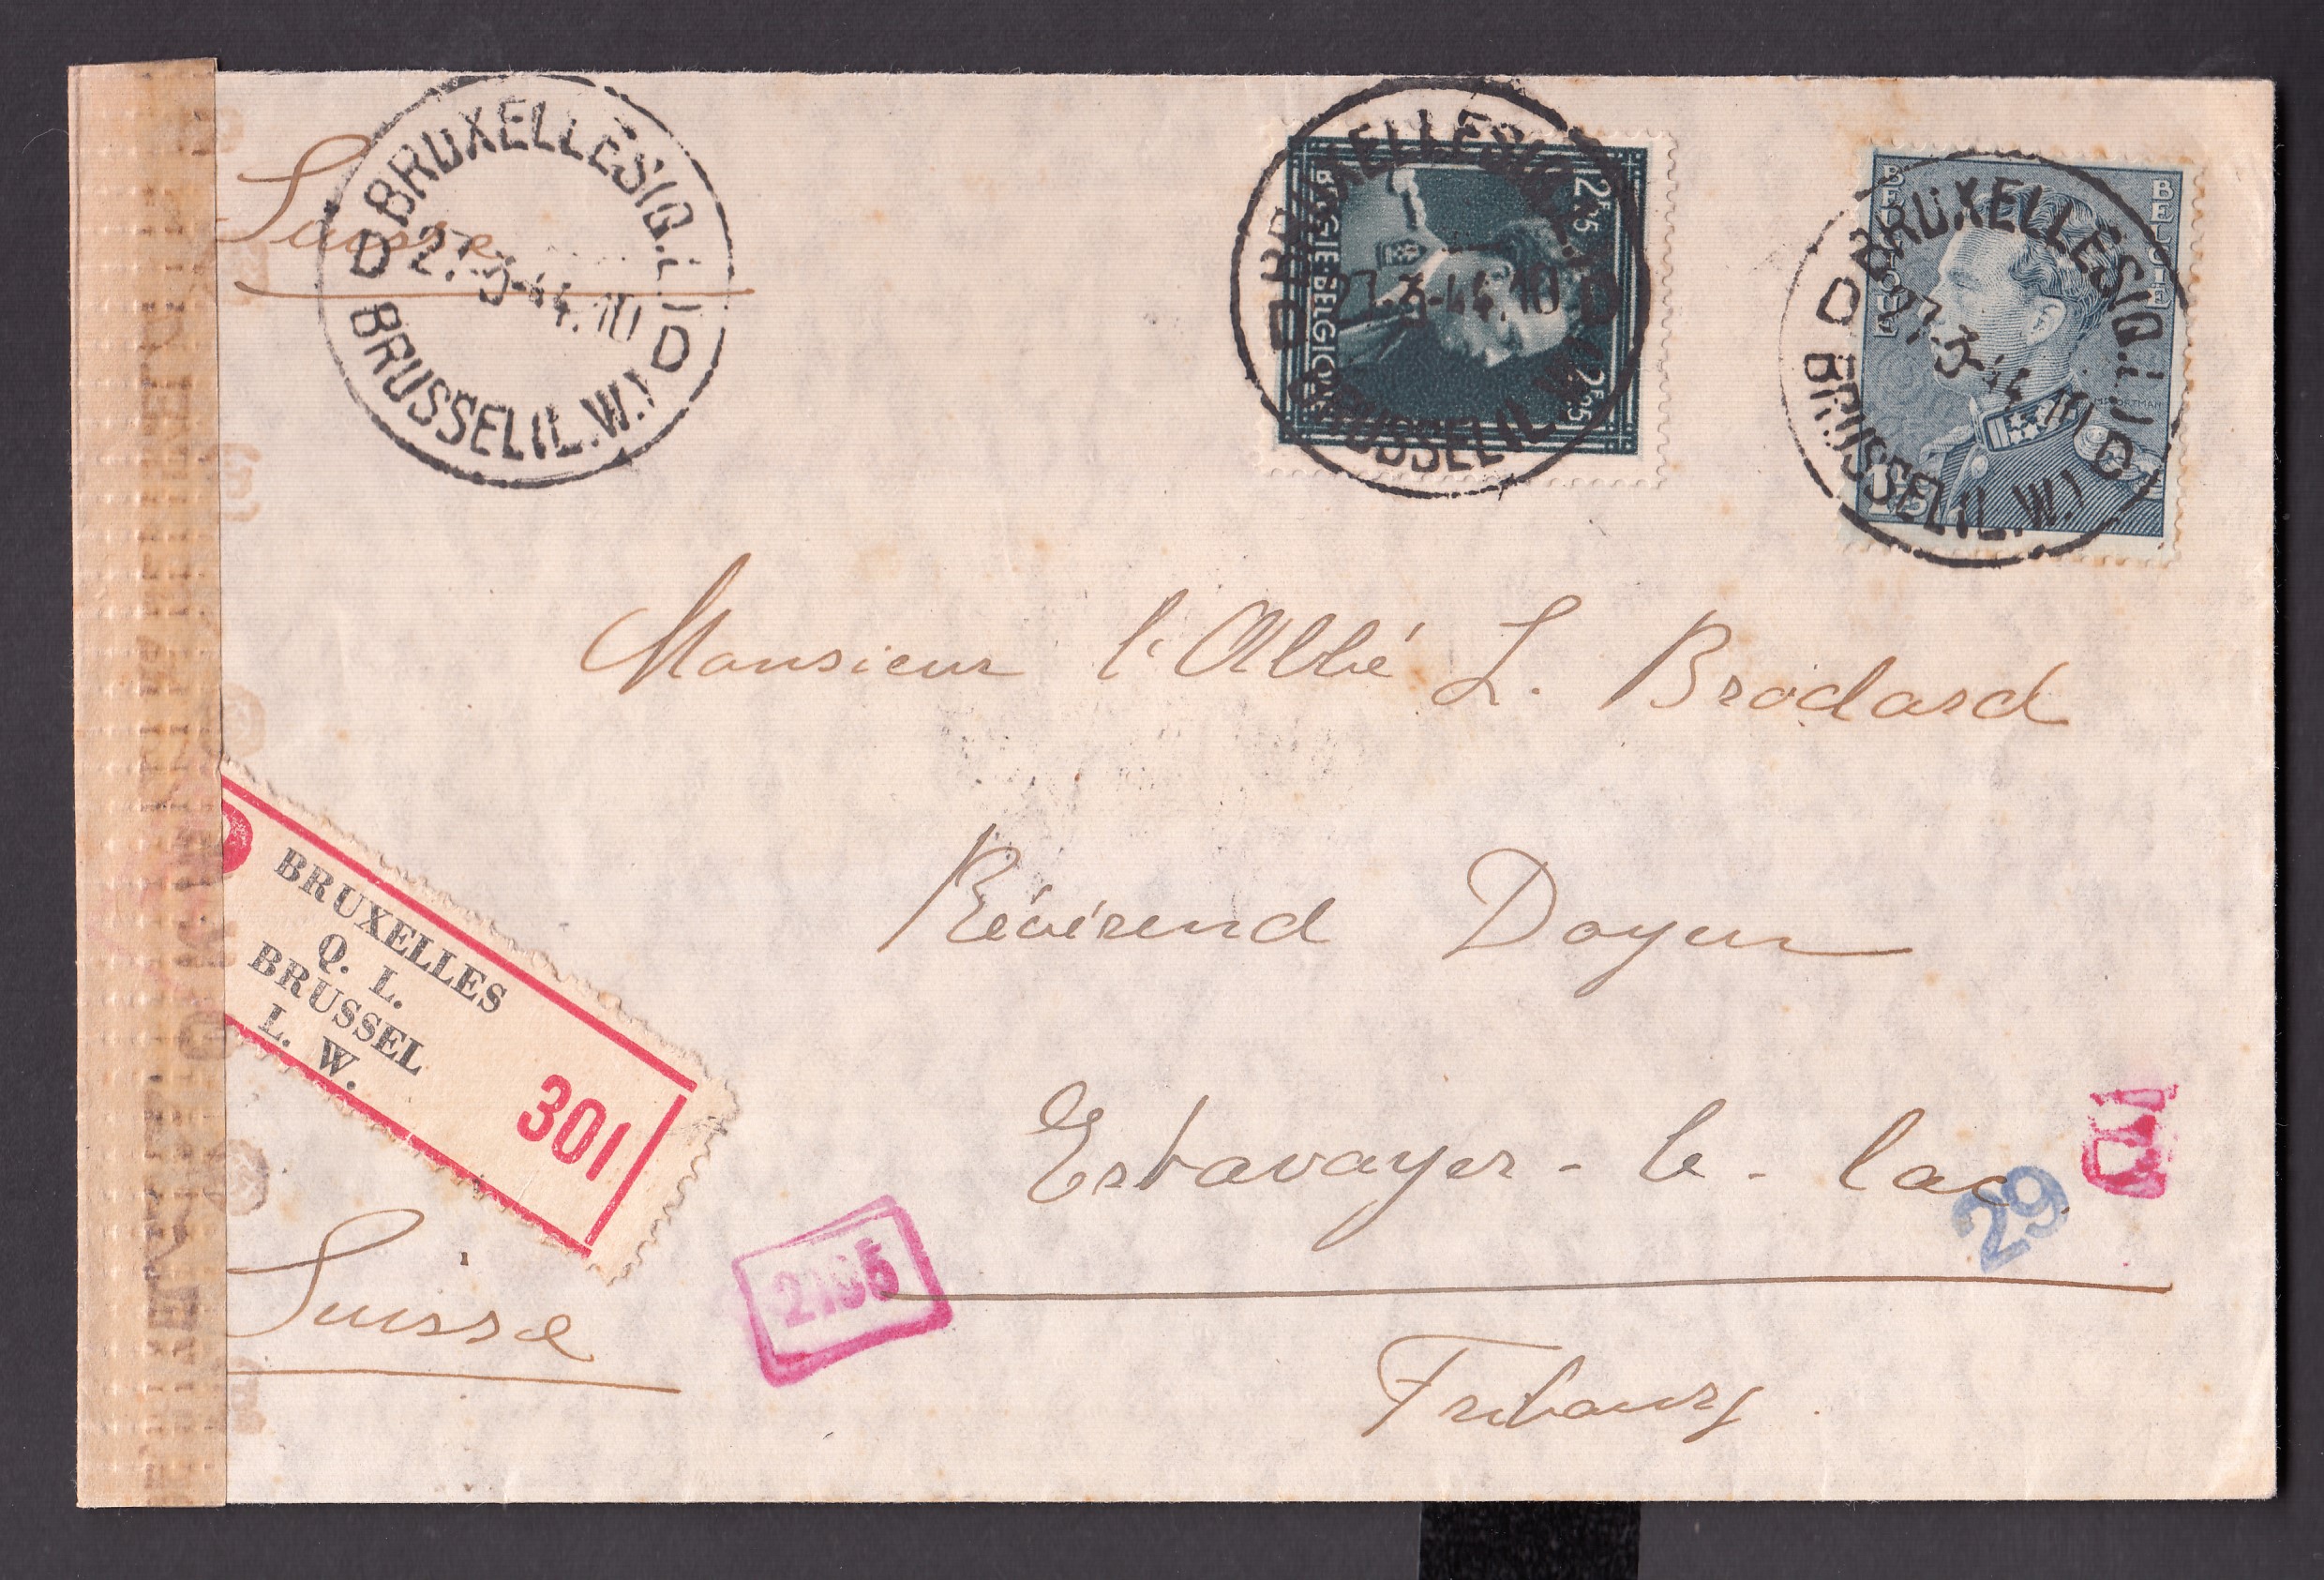 Suisse
BRUXELLES(Q.L.)
D 27.-3-44.10 D
BRUSSEL(L.W.)
BRUXELLES(Q.L.)
D 27.-3-44.10 D
BRUSSEL(L.W.)
BELGIE·BELGIQUE
2F25
2F25
BELGIQUE
BELGIE
BRUXELLES(Q.L.)
D 27.-3-44.10 D
BRUSSEL(L.W.)
Monsieur l'Abbé L. Brodard
Révérend Doyen
Estavayer-le-lac
Fribourg
Suisse
BRUXELLES
Q. L.
BRUSSEL
L. W.
301
29